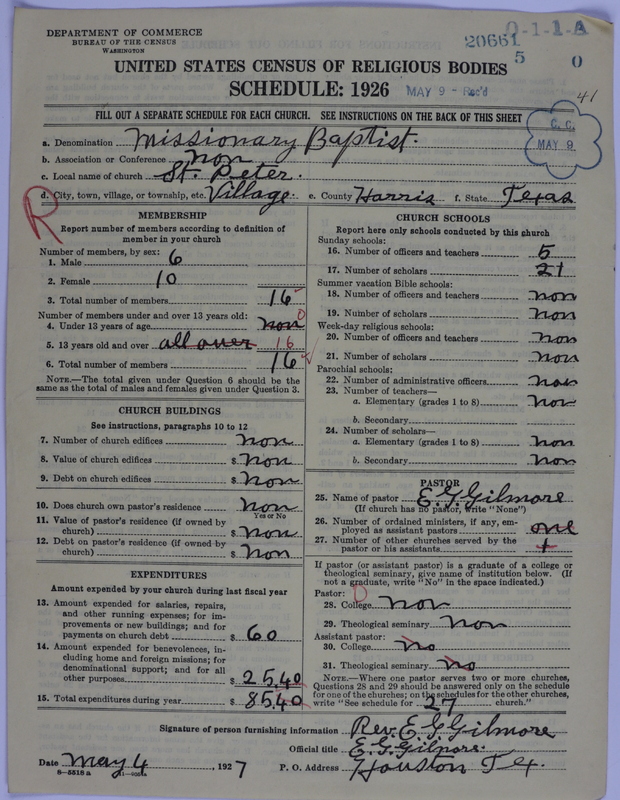 DEPARTMENT OF COMMERCE
BUREAU OF THE CENSUS
WASHINGTON
0-1-1-A
20661
5 0
UNITED STATES CENSUS OF RELIGIOUS BODIES
SCHEDULE: 1926 MAY 9 - Rec'd
41
FILL OUT A SEPARATE SCHEDULE FOR EACH CHURCH. SEE INSTRUCTIONS ON THE BACK OF THIS SHEET
C. C.
MAY 9
a. Denomination Missionary Baptist.
b. Association or Conference non
c. Local name of church St. Peter.
R
d. City, town, village, or township, etc. Village. e. County Harris f. State Texas
MEMBERSHIP
Report number of members according to definition of
member in your church
Number of members, by sex:
1. Male 6
2. Female 10
3. Total number of members 16
Number of members under and over 13 years old:
4. Under 13 years of age non 0
5. 13 years old and over all over 16
6. Total number of members 16
NOTE.—The total given under Question 6 should be
same as the total of males and females given under Question 3.
CHURCH BUILDINGS
See instructions, paragraphs 10 to 12
7. Number of church edifices non
8. Value of church edifices $ non
9. Debt on church edifices $ non
10. Does church own pastor's residence non
Yes or No
11. Value of pastor's residence (if owned by
church) $ non
12. Debt on pastor's residence (if owned by
church) $ non
EXPENDITURES
Amount expended by your church during last fiscal year
13. Amount expended for salaries, repairs,
and other running expenses; for im-
provements or new buildings; and for
payments on church debt $ 60
14. Amount expended for benevolences, in-
cluding home and foreign missions; for
denominational support; and for all
other purposes $ 25,40
15. Total expenditures during year $ 85,40
CHURCH SCHOOLS
Report here only schools conducted by this church
Sunday schools:
16. Number of officers and teachers 5
17. Number of scholars 21
Summer vacation Bible schools:
18. Number of officers and teachers non
19. Number of scholars non
Week-day religious schools:
20. Number of officers and teachers non
21. Number of scholars non
Parochial schools:
22. Number of administrative officers non
23. Number of teachers—
a. Elementary (grades 1 to 8) non
b. Secondary
24. Number of scholars—
a. Elementary (grades 1 to 8) non
b. Secondary non
PASTOR
25. Name of pastor E. G. Gilmore
(If church has no pastor, write "None")
26. Number of ordained ministers, if any, em-
ployed as assistant pastors one
27. Number of other churches served by the
pastor or his assistants 1
If pastor (or assistant pastor) is a graduate of a college or
theological seminary, give name of institution below. (If
not a graduate, write "No" in the space indicated.)
Pastor:
28. College non
29. Theological seminary non
Assistant pastor:
30. College no
31. Theological seminary no
NOTE.—Where one pastor serves two or more churches,
Questions 28 and 29 should be answered only on the schedule
for one of the churches; on the schedules for the other churches,
write "See schedule for 27 church."
Signature of person furnishing information Rev. E G Gilmore
Official title E. G. Gilmore.
Date may 4, 1927 P. O. Address Houston Tex.
8—5518 a